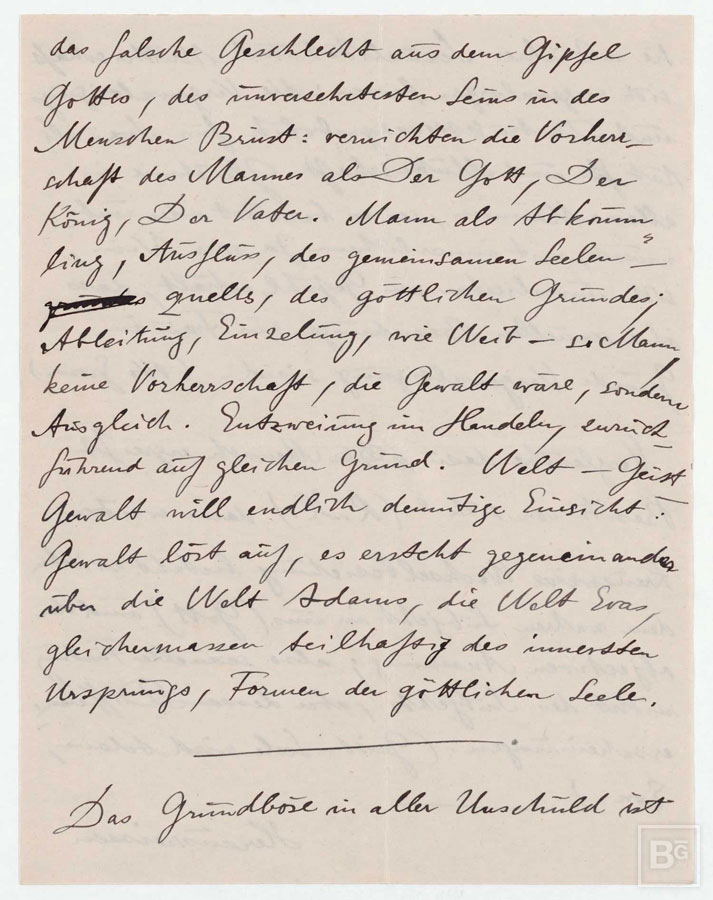 das falsche Geschlecht aus dem Gipfel
Gottes, des unversehrtesten Seins in des
Menschen Brust: vernichten die Vorherr-
schaft des Mannes als Der Gott, Der
König, Der Vater. Mann als Abkömm-
ling, Ausfluss, des gemeinsamen Seelen-
quells, des göttlichen Grundes;
Ableitung, Einzelung, wie Weib – so Mann
keine Vorherrschaft, die Gewalt wäre, sondern
Ausgleich. Entzweiung im Handeln, zurück-
führend auf gleichen Grund. Welt – Geist –
Gewalt will endlich demütige Einsicht:
Gewalt löst auf, es ersteht gegeneinander
über die Welt Adams, die Welt Evas,
gleichermassen teilhaftig des innersten
Ursprungs, Formen der göttlichen Seele.
Das Grundböse in aller Unschuld ist
BG